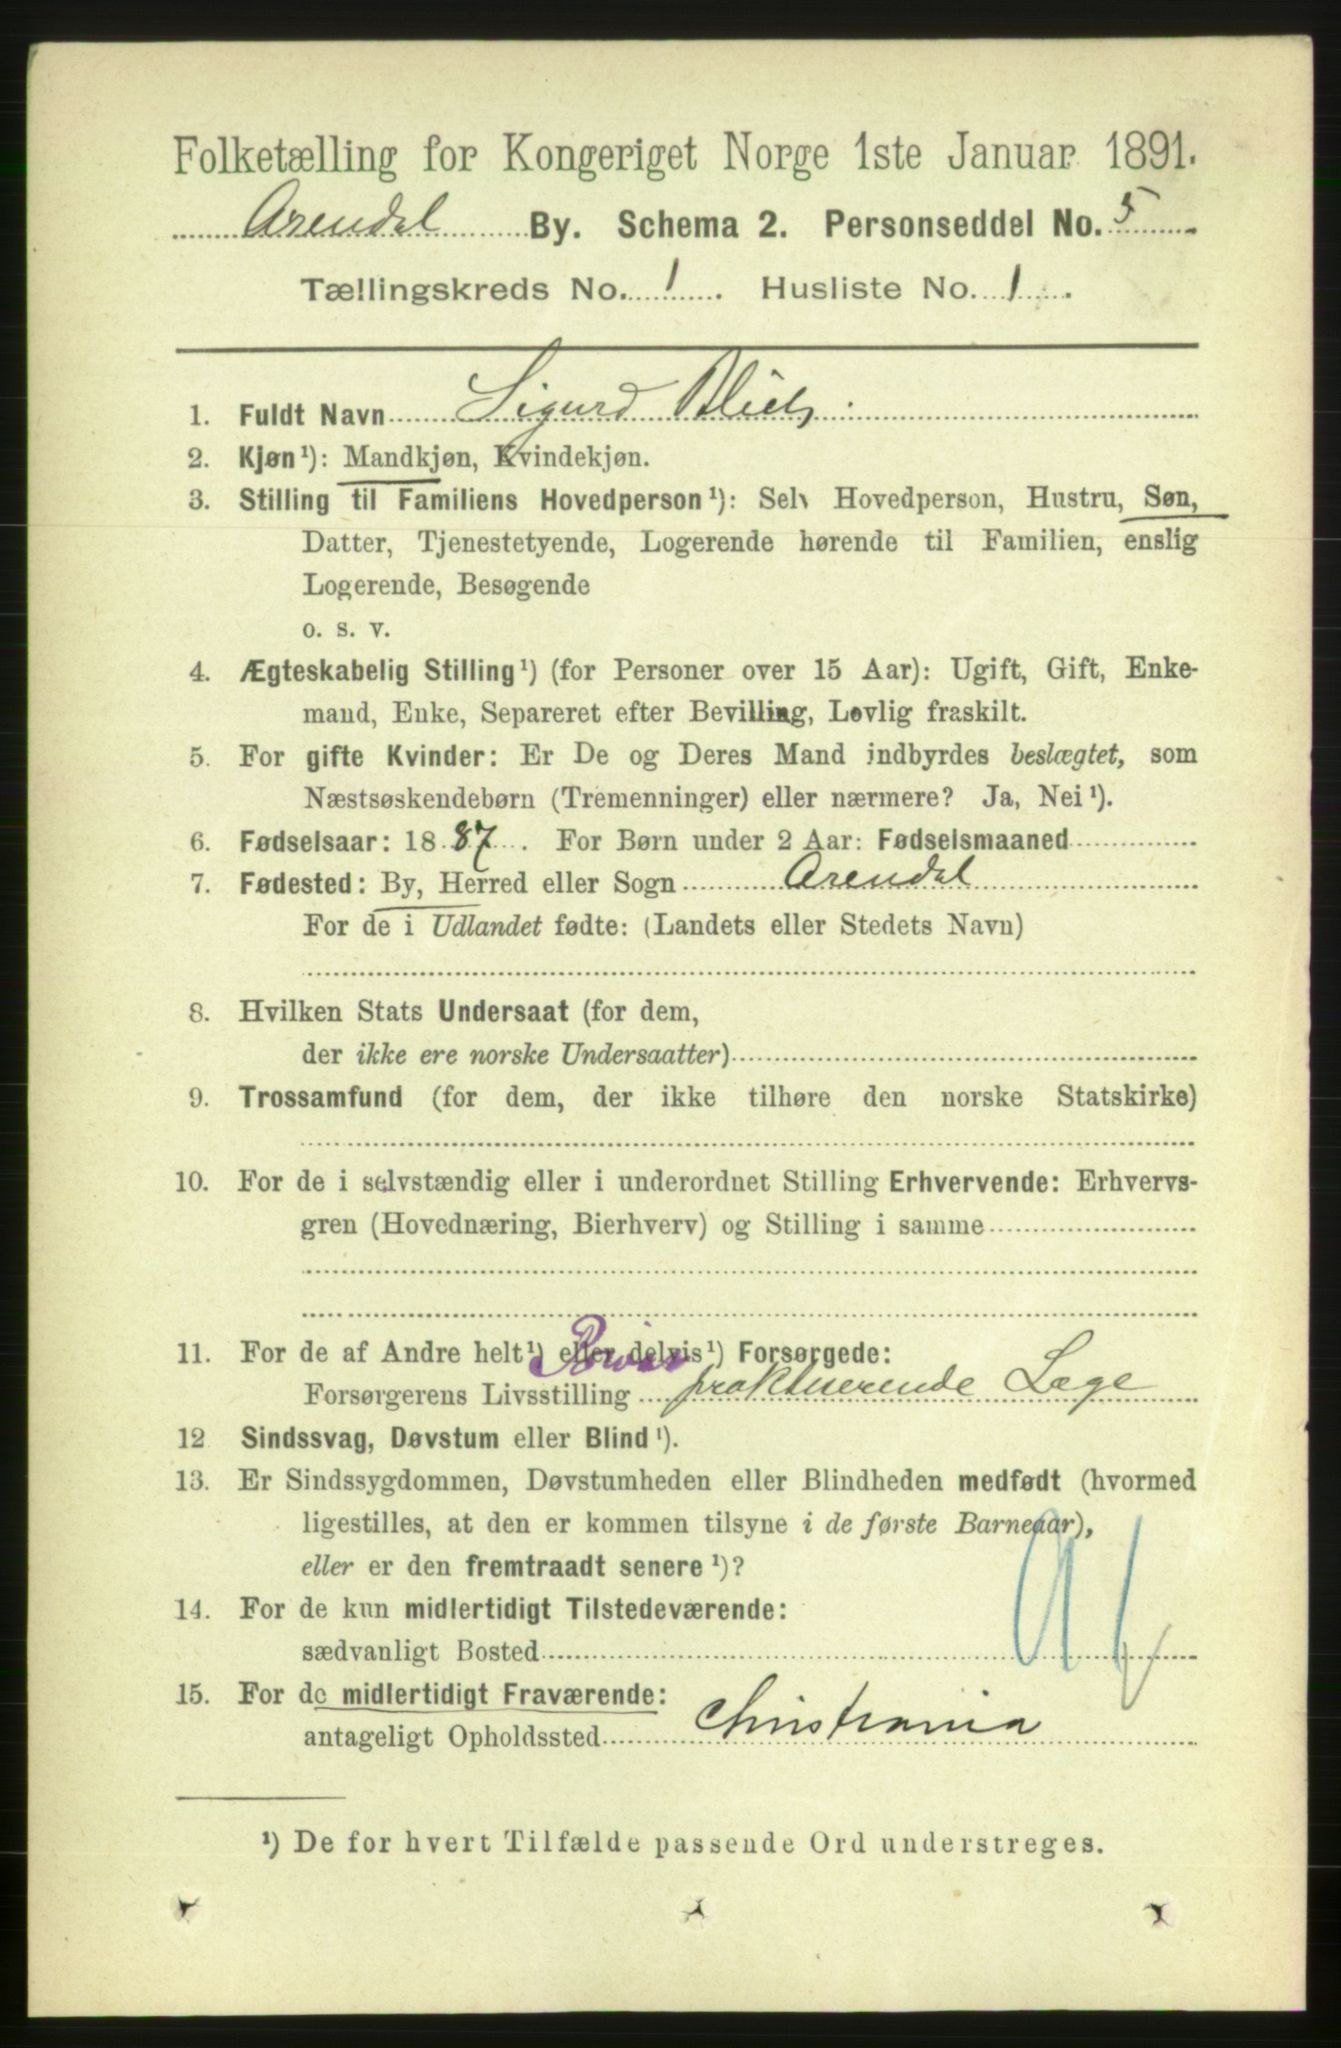 Folketælling for Kongeriget Norge 1ste Januar 1891.
Arendal By. Schema 2. Personseddel No. 5
Tællingskreds No. 1. Husliste No. 1.
1. Fuldt Navn Sigurd
2. Kjøn¹): Mandkjøn, Kvindekjøn.
3. Stilling til Familiens Hovedperson¹): Selv Hovedperson, Hustru, Søn,
Datter, Tjenestetyende, Logerende hørende til Familien, enslig
Logerende, Besøgende
o. s. v.
4. Ægteskabelig Stilling¹) (for Personer over 15 Aar): Ugift, Gift, Enke-
mand, Enke, Separeret efter Bevilling, Lovlig fraskilt.
5. For gifte Kvinder: Er De og Deres Mand indbyrdes beslægtet, som
Næstsøskendebørn (Tremenninger) eller nærmere? Ja, Nei¹).
6. Fødselsaar: 1887. For Børn under 2 Aar: Fødselsmaaned
7. Fødested: By, Herred eller Sogn Arendal
For de i Udlandet fødte: (Landets eller Stedets Navn)
8. Hvilken Stats Undersaat (for dem,
der ikke ere norske Undersaatter)
9. Trossamfund (for dem, der ikke tilhøre den norske Statskirke)
10. For de i selvstændig eller i underordnet Stilling Erhvervende: Erhvervs-
gren (Hovednæring, Bierhverv) og Stilling i samme
11. For de af Andre helt¹) eller delvis¹) Forsørgede:
Forsørgerens Livsstilling Privat praktiserende Læge
12 Sindssvag, Døvstum eller Blind¹).
13. Er Sindssygdommen, Døvstumheden eller Blindheden medfødt (hvormed
ligestilles, at den er kommen tilsyne i de første Barneaar),
eller er den fremtraadt senere¹)?
14. For de kun midlertidigt Tilstedeværende:
sædvanligt Bosted
15. For de midlertidigt Fraværende:
antageligt Opholdssted Christiania
¹) De for hvert Tilfælde passende Ord understreges.